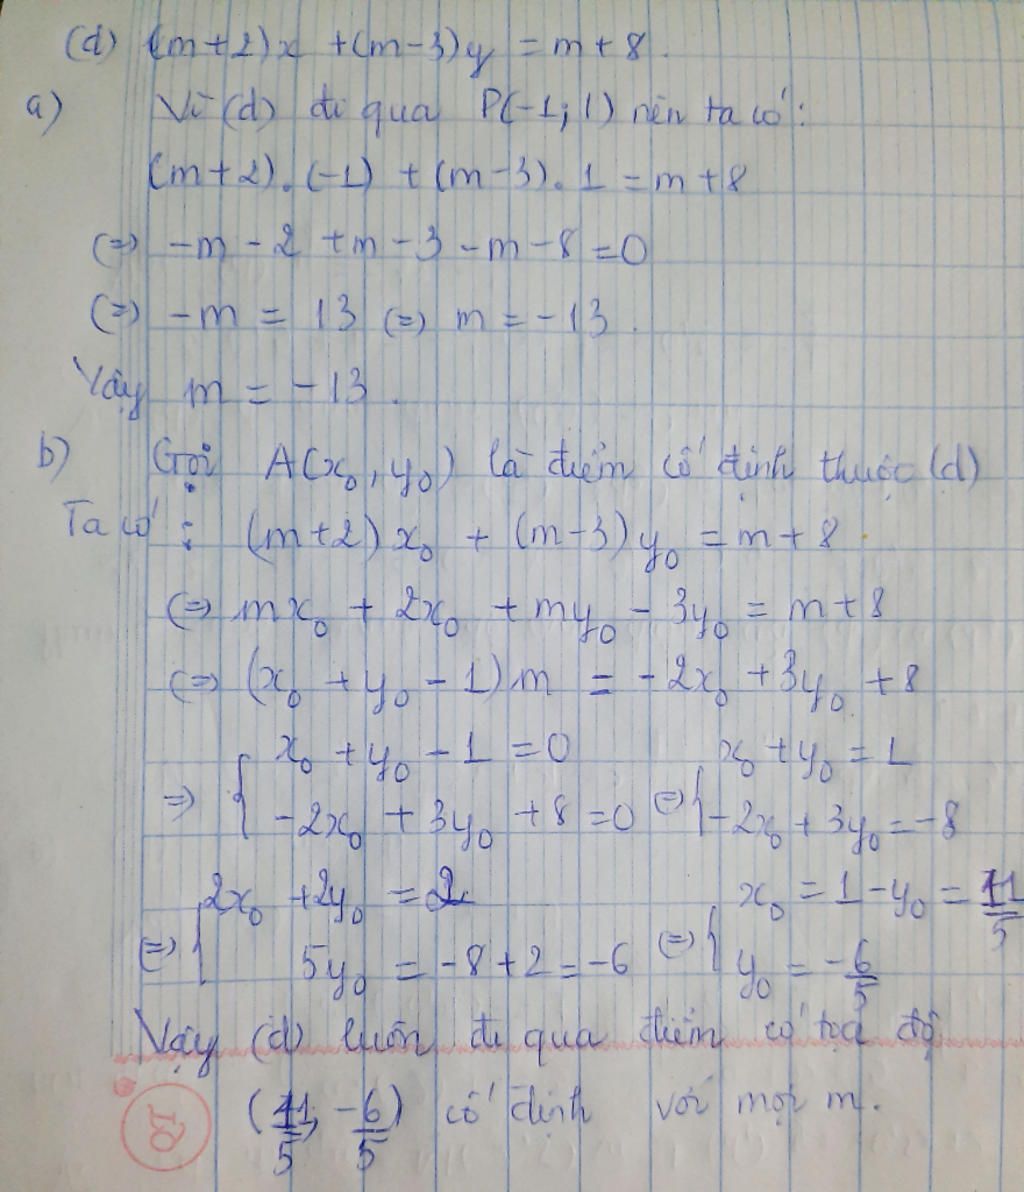 (d) (m+2)x +(m-3)y = m+8.
a) Vì (d) đi qua P(-1; 1) nên ta có:
(m+2).(-1) +(m-3).1 = m+8
(=) -m-2 +m-3-m-8=0
(=) -m = 13 (=) m = -13.
Vậy m = -13.
b) Gọi A(x₀, y₀) là điểm cố định thuộc (d)
Ta có: (m+2)x₀ + (m-3)y₀ = m+8
(=) mx₀ + 2x₀ + my₀ - 3y₀ = m+8
(=) (x₀ + y₀ - 1)m = -2x₀ +3y₀ +8
=) { x₀ + y₀ - 1 = 0
-2x₀ + 3y₀ +8 =0
(=) { x₀ + y₀ = 1
-2x₀ + 3y₀ = -8
(=) { 2x₀ +2y₀ = 2
5y₀ = -8+2 = -6
(=) { x₀ = 1-y₀ = 11/5
y₀ = -6/5
Vậy (d) luôn đi qua điểm có toạ độ
(11/5; -6/5) cố định với mọi m.